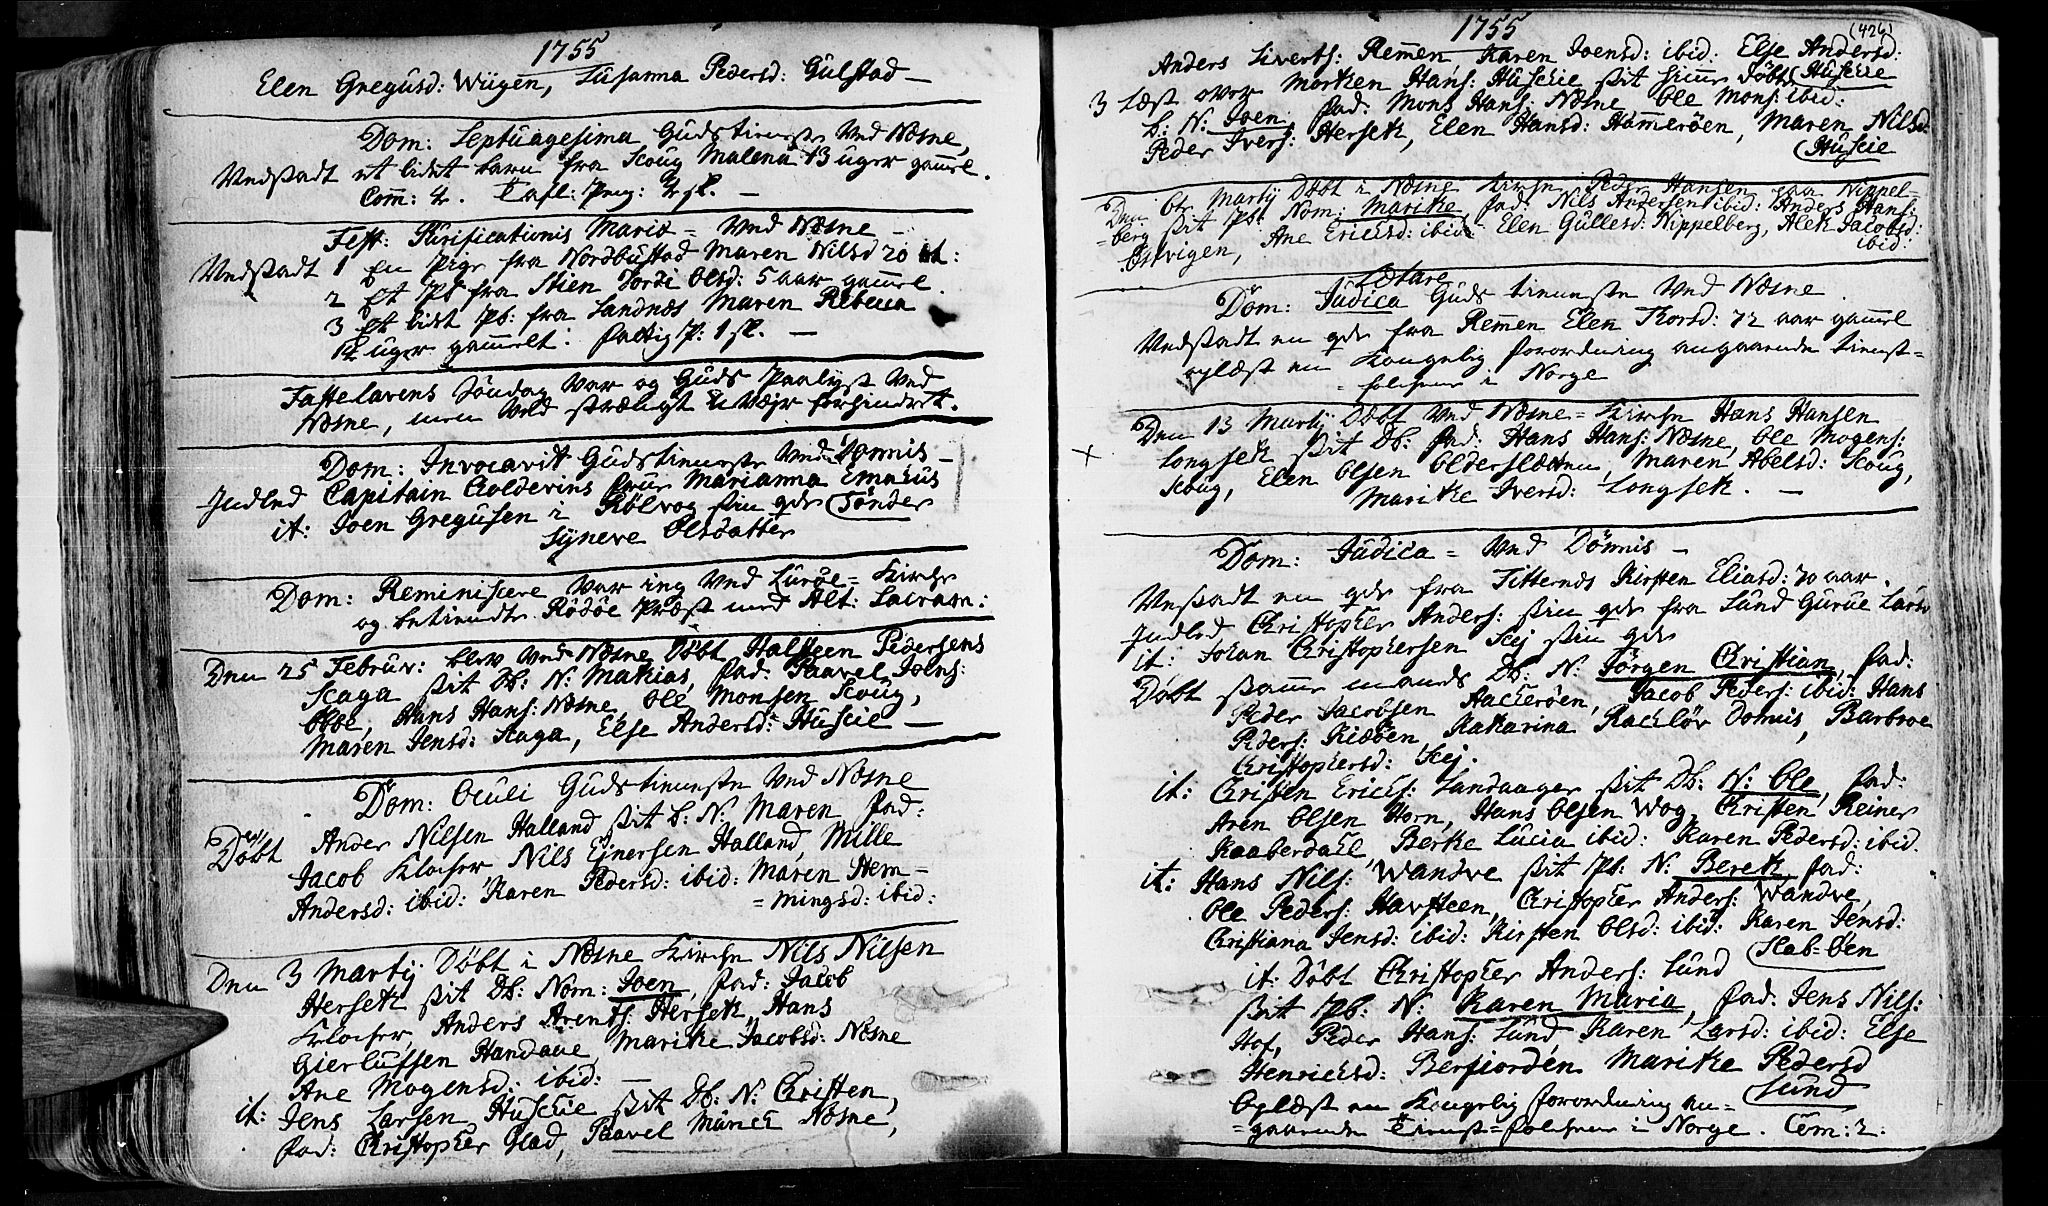 1755
Elen Gregusd: Wiigen, Susanna Pedersd: Gulstad —
Dom: Septuagesima Gudstieneste Ved Næsne,
Vedstadt et lidet barn fra Scoug Malena 13 uger gamel.
Com: 4. Tafl: Peng: 2 sk. —
Fest: Purificationis Mariæ = Ved Næsne —
Vedstadt 1 En Pige fra Nordbustad Maren Nilsd 20 at:
2 Et Pb: fra Stien Dordi Olsd: 5 aar gamel.
3 Et lidet Pb: fra Sandnæs Maren Rebeca
14 uger gamelt. fattig P: 1 sk. —
Fastelavens Søndag Var og Guds Paalyst Ved
Næsne, men Ved strængt uVejr forhindret.
Dom: Invocavit Gudstieneste Ved Dønnis —
Indled Capitain Colderins frue Marianna Emahus
it: Joen Gregusen i Rølvog sin qde Tønder
Syneve Olsdatter
Dom: Reminiscere Var ieg Ved Lurøe = Kirche
og betiendte Rødøe Præst med Alt: Sacram:
Den 25 Februar: blev Ved Næsne Døbt Halsteen Pedersens
Scaga sit Db: N: Mathias, fad: Paavel Joens:
Obbe, Hans Hans: Næsne, Ole Monsen Scoug,
Maren Jensd: Scaga, Else Andersd: Huscie —
Dom: Oculi Gudstieneste Ved Næsne
Døbt Ander Nilsen Halland sit b: N: Maren fad:
Jacob Klocher Nils Ejnersen Halland, Mille
Andersd: ibid: Karen Pedersd: ibid: Maren Hem=
=mingsd: ibid:
Den 3 Martij Døbt i Næsne Kirche Nils Nilsen
Herseth sit Db: Nom: Joen, fad: Jacob
Klocher, Anders Arents: Herseth, Hans
Gierlufsen Handaae Marithe Jacobsd: Næsne
Ane Mogensd: ibid: —
it: Jens Larsen Huscie sit Db: N: Christen,
fad: Christopher Flad, Paavel Munch Næsne,
1755
(426)
Anders Siverts: Remen Karen Joensd: ibid: Else Andersd:
Huscie
3 Læst over Morten Hans: Huscie sit hiem døbte
b: N: Joen, fad: Mons Hans: Næsne Ole Mons: ibid:
Peder Ivers: Herseth, Elen Hansd: Hammerøen, Maren Nilsd:
Huscie
Den 6te Martij Døbt i Næsne Kirche Peder Hansen paa Nippel=
=berg sit Pb: Nom: Marithe fad: Nils Andersen ibid: Anders Hans:
Ostvigen, Ane Erichsd: ibid: Elen Gullesd: Nippelberg, Aleth Jacobsd:
ibid:
Lætare
Dom: Judica Guds tieneste Ved Næsne
Vedstadt en qde fra Remen Elen Thorsd: 72 aar gamel
oplæst en Kongelig forordning angaaende tienst=
=folchene i Norge
Den 13 Martij Døbt Ved Næsne = Kirche Hans Hansen
Longseth sit Db: fad: Hans Hans: Næsne, Ole Mogens:
Scoug, Elen Olsen Olderslætten, Maren Abelsd: Scoug,
Marithe Iversd: Longseth. —
Dom: Judica = Ved Dønnis —
Vedstadt en qde fra Titternæs Kirsten Eliasd: 70 aar.
Indled Christopher Anders: sin qde fra Sund Gurue Larsd
it: Johan Christophersen Scej sin qde
Døbt samme mands Db: N: Jørgen Christian, fad:
Peder Jacobsen Aacherøen, Jacob Peders: ibid: Hans
Peders: Kidøen, Katharina Rachløv Dønnis, Barbroe
Christophersd: Scej.
it: Christen Erichs: Sandaager sit Db: N: Ole, fad:
Aren Olsen Horn, Hans Olsen Wog, Christen Reiner
Kaaberdahl, Berthe Lucia ibid: Karen Pedersd: ibid.
it: Hans Nils: Wandve sit Pb: N: Bereth fad:
Ole Peders: Havsteen, Christopher Anders: Wandve,
Christiana Jensd: ibid: Kirsten Olsd: ibid: Karen Jensd:
Slab=øen
it: Døbt Christopher Anders: Sund
sit Pb: N: Karen Maria, fad: Jens Nils:
Hof, Peder Hans: Sund, Karen Larsd: ibid: Else
Henrichsd: Berfiorden Marithe Pedersd
Sund
Oplæst en Kongelig forordning an=
=gaaende Tienst=folchene i Norge. Com: 2.